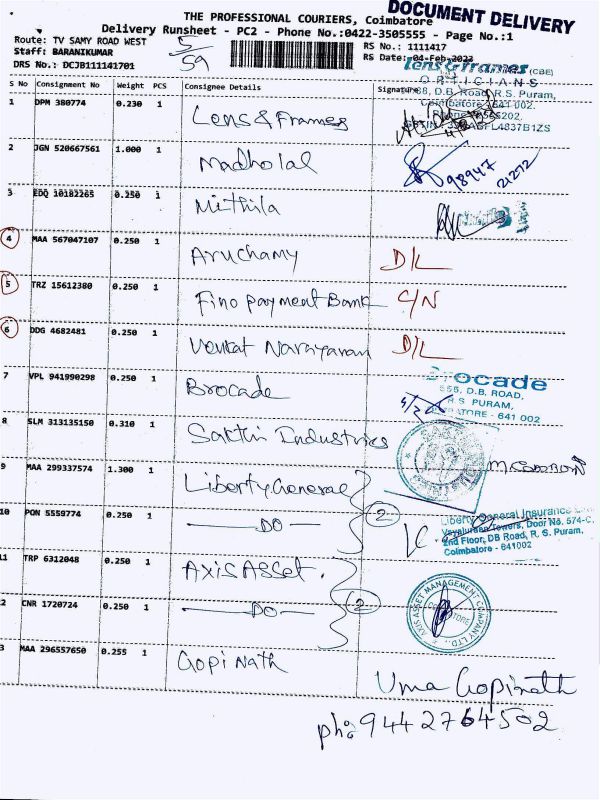 THE PROFESSIONAL COURIERS, Coimbatore
DOCUMENT DELIVERY
Delivery Runsheet - PC2 - Phone No.:0422-3505555 - Page No.:1
Route: TV SAMY ROAD WEST
5/59
RS No.: 1111417
Staff: BARANIKUMAR
RS Date: 04-Feb-2023
DRS No.: DCJB111141701
Lens & frames (CBE)
OPTICIANS
S No Consignment No Weight PCS Consignee Details Signature
88, D.B. Road, R.S. Puram,
Coimbatore - 641 002.
1 DPM 380774 0.230 1 Lens & Frames
2 JGN 520667561 1.000 1 Madholal 98947 21272
3 EDQ 10182265 0.250 1 Mithila
4 MAA 567047107 0.250 1 Aruchamy D/L
5 TRZ 15612380 0.250 1 Fino Payment Bank C/N
6 DDG 4682481 0.250 1 Venkat Narayanan D/L
7 VPL 941990298 0.250 1 Brocade
Brocade
555, D.B. ROAD,
R.S. PURAM,
COIMBATORE - 641 002
8 SLM 313135150 0.310 1 Sakthi Industries
9 MAA 299337574 1.300 1 Liberty General
10 PON 5559774 0.250 1 DO 2
Liberty General Insurance
Vayaluraan Towers, Door No. 574-C,
2nd Floor, DB Road, R. S. Puram,
Coimbatore - 641002
11 TRP 6312048 0.250 1 Axis Asset.
2 CNR 1720724 0.250 1 DO 2
AXIS ASSET MANAGEMENT COMPANY LTD.
3 MAA 296557650 0.255 1 Gopi Nath
Uma Gopinath
ph: 9442764502